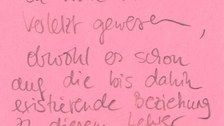 verletzt gewesen,
obwohl es schon
auf die bis dahin
existierende Beziehung
zu diesem Lehrer